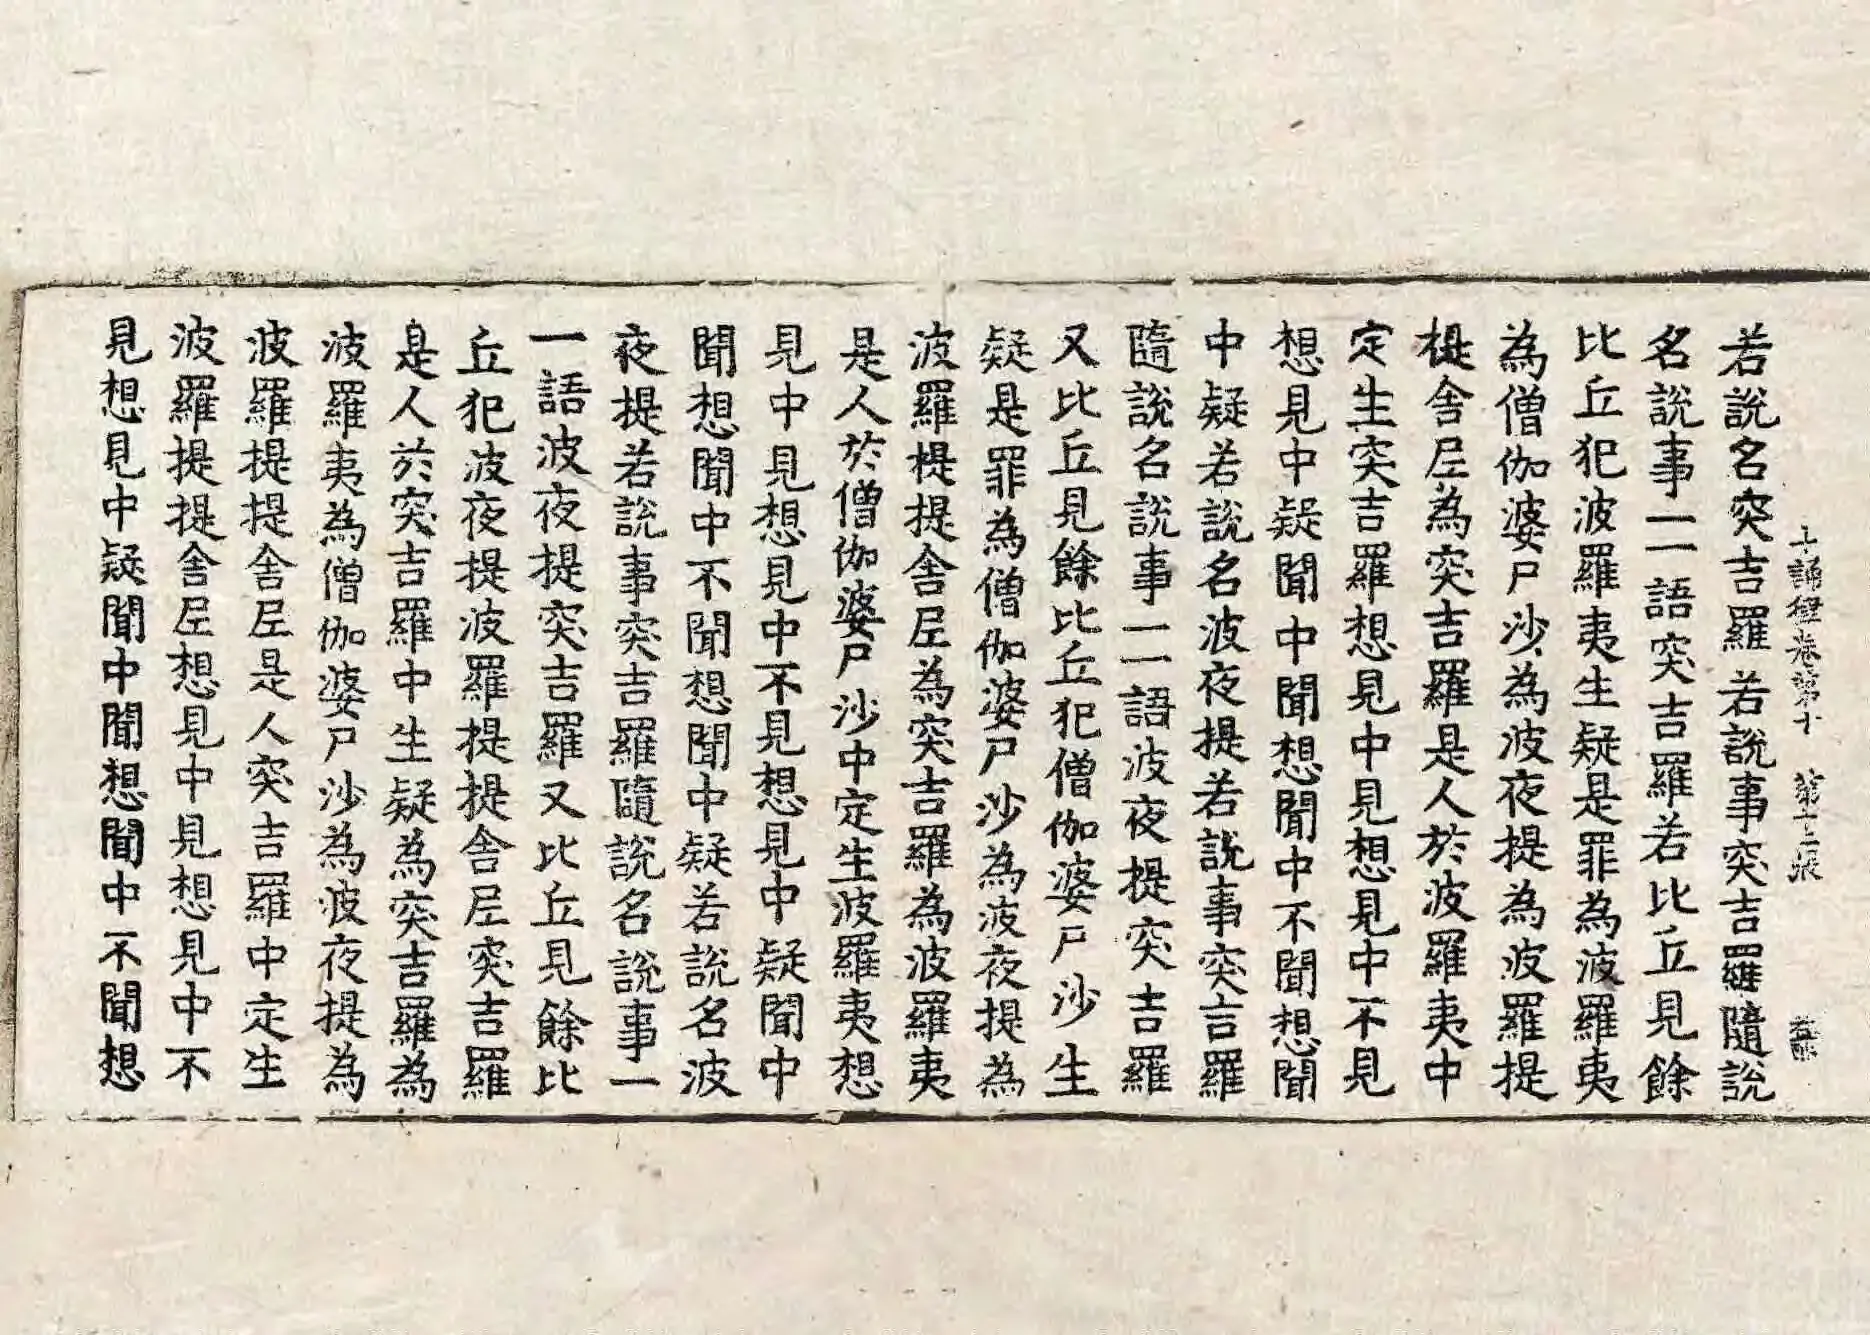 十誦經卷第十 第十二張
若說名突吉羅若說事突吉羅隨說
名說事一一語突吉羅若比丘見餘
比丘犯波羅夷生疑是罪為波羅夷
為僧伽婆尸沙為波夜提為波羅提
提舍尼為突吉羅是人於波羅夷中
定生突吉羅想見中見想見中不見
想見中疑聞中聞想聞中不聞想聞
中疑若說名波夜提若說事突吉羅
隨說名說事一一語波夜提突吉羅
又比丘見餘比丘犯僧伽婆尸沙生
疑是罪為僧伽婆尸沙為波夜提為
波羅提提舍尼為突吉羅為波羅夷
是人於僧伽婆尸沙中定生波羅夷想
見中見想見中不見想見中疑聞中
聞想聞中不聞想聞中疑若說名波
夜提若說事突吉羅隨說名說事一
一語波夜提突吉羅又比丘見餘比
丘犯波夜提波羅提提舍尼突吉羅
是人於突吉羅中生疑為突吉羅為
波羅夷為僧伽婆尸沙為波夜提為
波羅提提舍尼是人突吉羅中定生
波羅提提舍尼想見中見想見中不
見想見中疑聞中聞想聞中不聞想